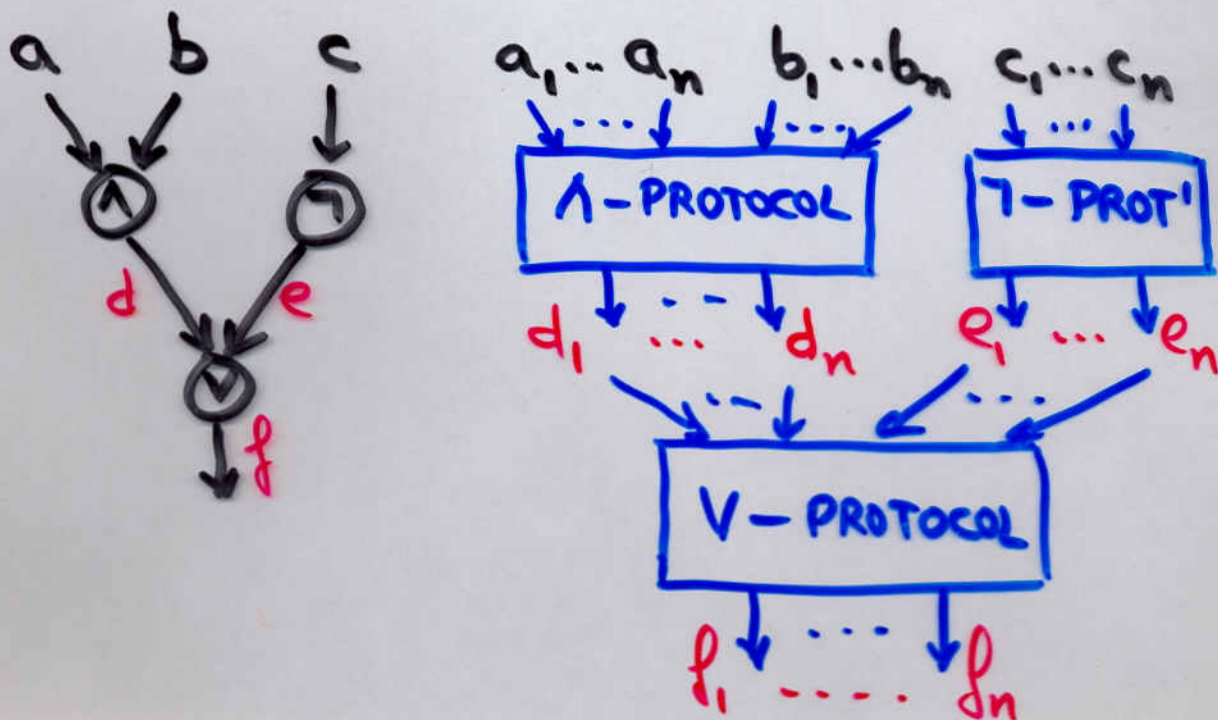 a b c a₁ ... aₙ b₁ ... bₙ c₁ ... cₙ
∧ ¬ ∧ - PROTOCOL ¬ - PROT'
d e d₁ ... dₙ e₁ ... eₙ
∨
f ∨ - PROTOCOL
f₁ ..... fₙ